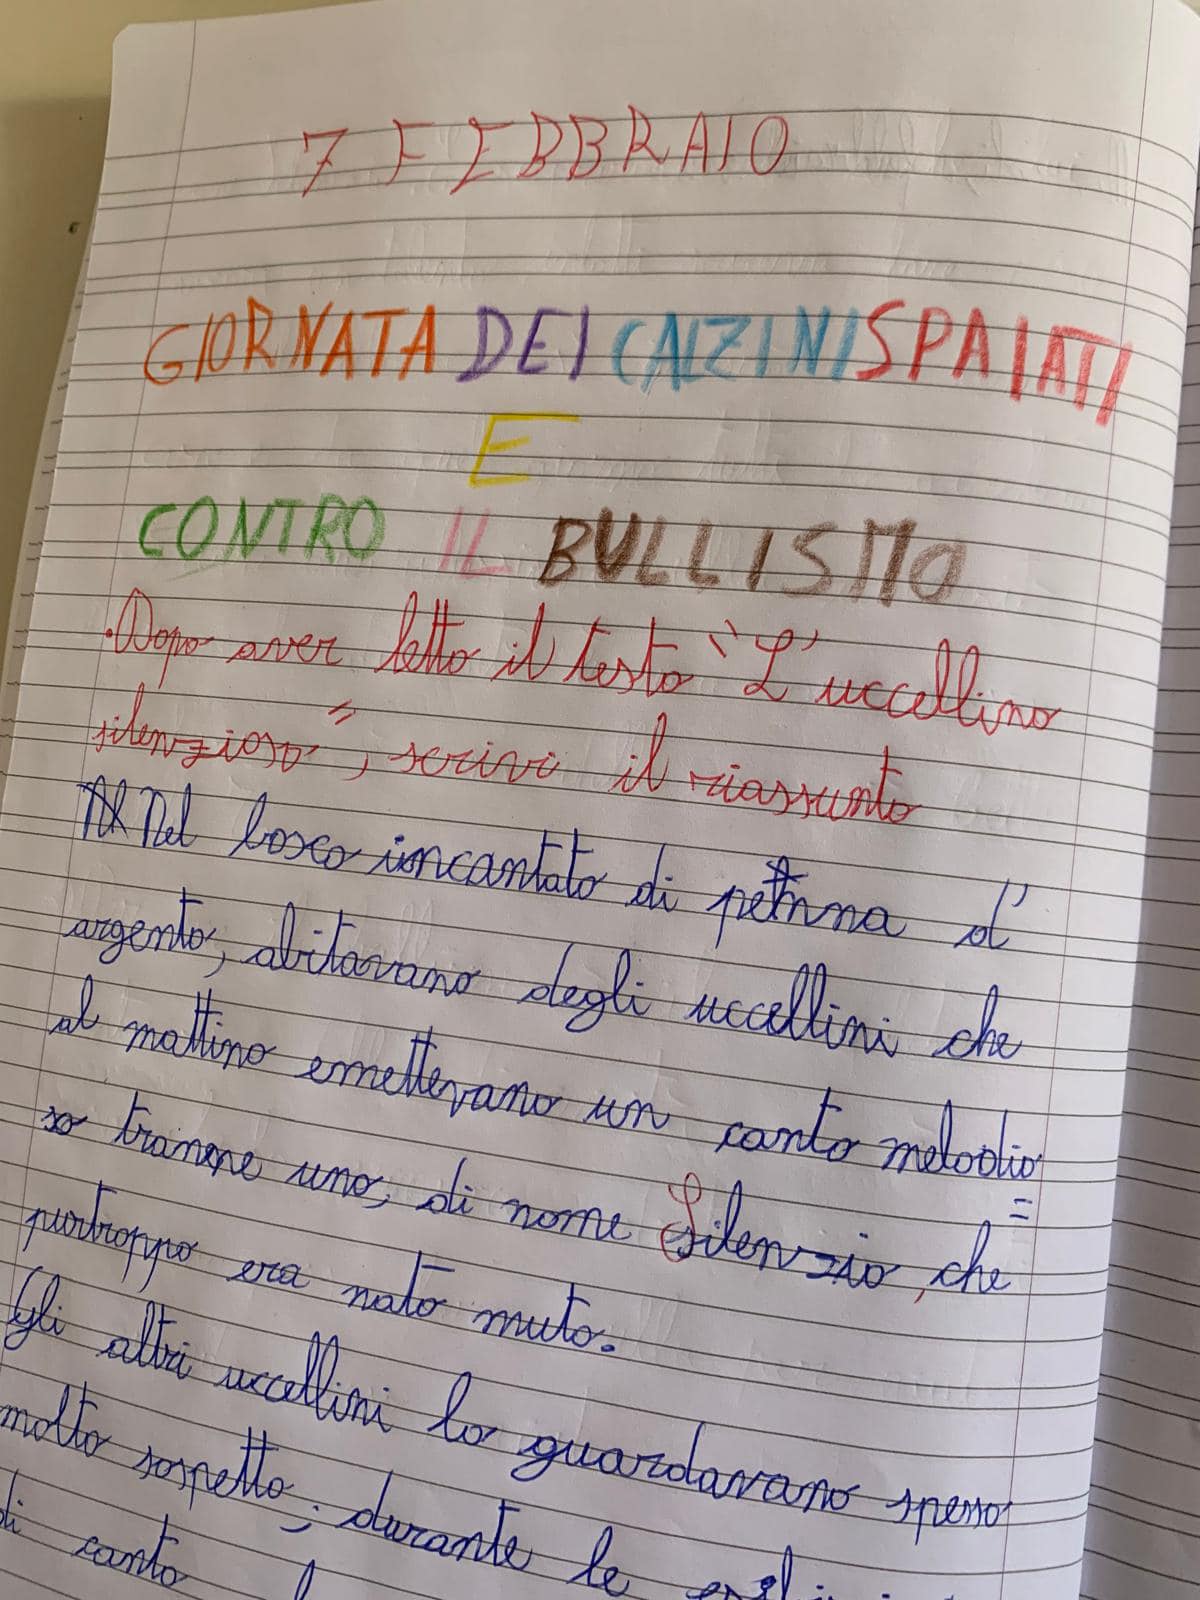 7 FEBBRAIO
GIORNATA DEI CALZINI SPAIATI
E
CONTRO IL BULLISMO
·Dopo aver letto il testo "L'uccellino
silenzioso", scrivi il riassunto
Nel bosco incantato di penna d'
argento, abitavano degli uccellini che
al mattino emettevano un canto melodio
=
so tranne uno, di nome Silenzio, che
purtroppo era nato muto.
Gli altri uccellini lo guardavano spesso
molto sospetto; durante le
di canto